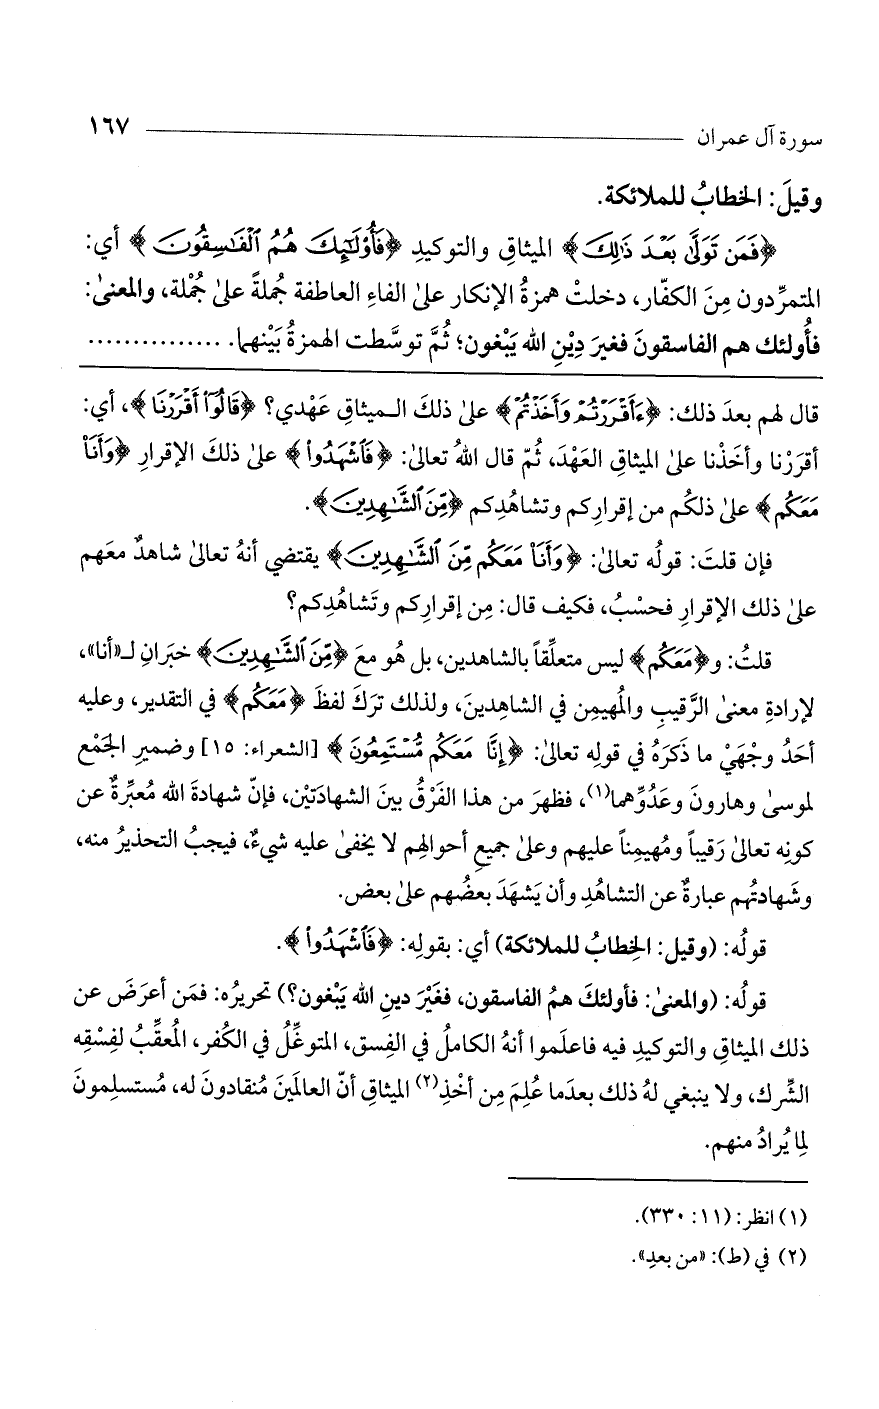 سورة آل عمران ــــــــــــــــــــ ١٦٧
وقيلَ: الخطابُ للملائكة.
﴿فَمَن تَوَلَّىٰ بَعْدَ ذَٰلِكَ﴾ الميثاقِ والتوكيدِ ﴿فَأُوْلَٰٓئِكَ هُمُ ٱلْفَٰسِقُونَ﴾ أي:
المتمرِّدون مِنَ الكفّار، دخلتْ همزةُ الإنكار علىٰ الفاءِ العاطفة جُملةً علىٰ جُملة، والمعنىٰ:
فأُولئك هم الفاسقونَ فغيرَ دِيْنِ الله يَبْغون؛ ثُمَّ توسَّطت الهمزةُ بَيْنهما. ...............
قال لهم بعدَ ذلك: ﴿ءَأَقْرَرْتُمْ وَأَخَذْتُمْ﴾ علىٰ ذلكَ الـميثاقِ عَهْدي؟ ﴿قَالُوٓا۟ أَقْرَرْنَا﴾، أي:
أقرَرْنا وأخَذْنا علىٰ الميثاقِ العَهْدَ، ثُمّ قال اللهُ تعالىٰ: ﴿فَٱشْهَدُوا۟﴾ علىٰ ذلكَ الإقرارِ ﴿وَأَنَا۠
مَعَكُم﴾ علىٰ ذلكُم من إقرارِكم وتشاهُدِكم ﴿مِّنَ ٱلشَّٰهِدِينَ﴾.
فإن قلتَ: قولُه تعالىٰ: ﴿وَأَنَا۠ مَعَكُم مِّنَ ٱلشَّٰهِدِينَ﴾ يقتضي أنهُ تعالىٰ شاهدٌ معَهم
علىٰ ذلك الإقرارِ فحسْبُ، فكيف قال: مِن إقرارِكم وتَشاهُدِكم؟
قلتُ: و﴿مَعَكُم﴾ ليس متعلِّقاً بالشاهدين، بل هُو معَ ﴿مِّنَ ٱلشَّٰهِدِينَ﴾ خبَرانِ لـ«أنا»،
لإرادةِ معنىٰ الرَّقيبِ والمُهيمِن في الشاهِدينَ، ولذلك تركَ لفظَ ﴿مَعَكُم﴾ في التقدير، وعليه
أحَدُ وجْهَيْ ما ذكَرَهُ في قولِه تعالىٰ: ﴿إِنَّا مَعَكُم مُّسْتَمِعُونَ﴾ [الشعراء: ١٥] وضميرِ الجَمْع
لموسىٰ وهارونَ وعَدُوِّهما(١)، فظهرَ من هذا الفَرْقُ بينَ الشهادَتيْن، فإنّ شهادةَ الله مُعبِّرةٌ عن
كونِه تعالىٰ رَقيباً ومُهيمِناً عليهم وعلىٰ جميعِ أحوالِهم لا يخفىٰ عليه شيءٌ، فيجبُ التحذيرُ منه،
وشَهادتُهم عبارةٌ عن التشاهُدِ وأن يَشهَدَ بعضُهم علىٰ بعض.
قولُه: (وقيل: الخِطابُ للملائكة) أي: بقولِه: ﴿فَٱشْهَدُوا۟﴾.
قولُه: (والمعنىٰ: فأولئكَ همُ الفاسقون، فغَيْرَ دينِ الله يَبْغون؟) تحريرُه: فمَن أعرَضَ عن
ذلك الميثاقِ والتوكيدِ فيه فاعلَموا أنهُ الكاملُ في الفِسق، المتوغِّلُ في الكُفر، المُعقِّبُ لفِسْقِه
الشِّرك، ولا ينبغي لهُ ذلك بعدَما عُلِمَ مِن أخْذِ(٢) الميثاقِ أنّ العالَمينَ مُنقادونَ له، مُستسلِمونَ
لِما يُرادُ منهم.
(١) انظر: (١١: ٣٣٠).
(٢) في (ط): «من بعدِ».